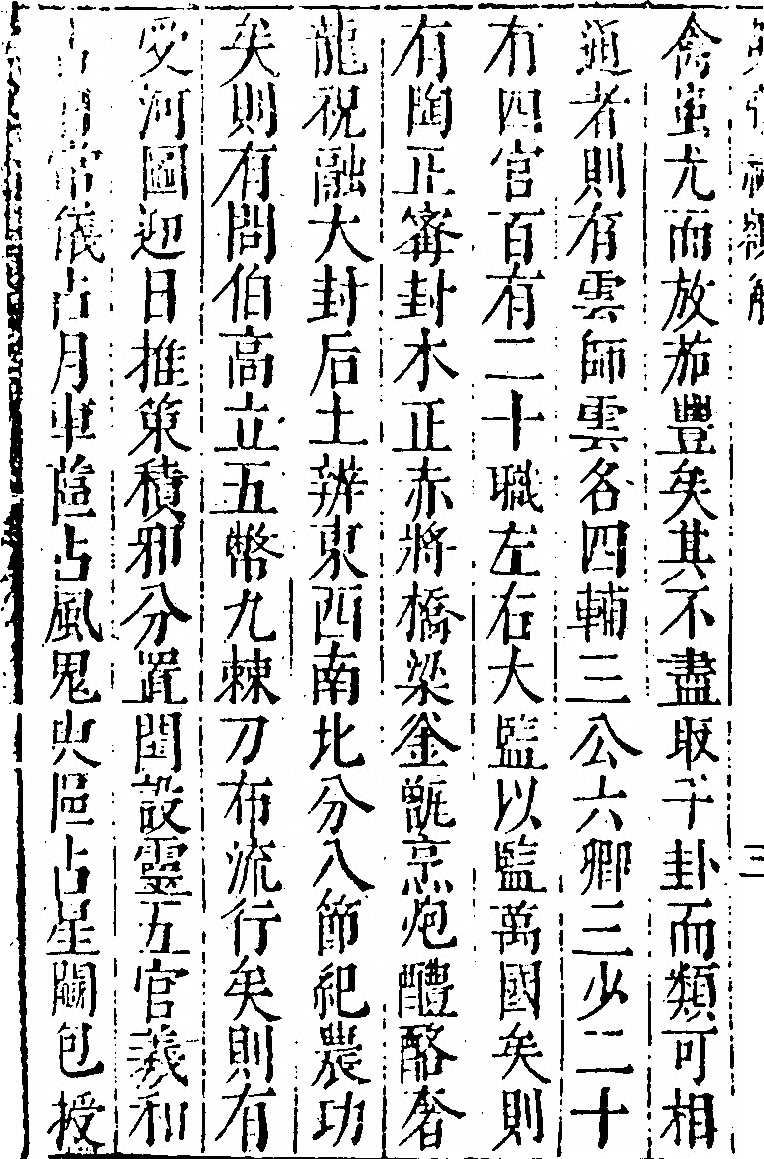 禽蚩尤而放茄豐矣其不盡取于卦而類可相
通者則有雲師雲各四輔三公六卿三少二十
有四官百有二十職左右大監以監萬國矣則
有陶正審封木正赤將橋梁釜甑烹炮醴酪奢
龍祝融大封后土辨東西南北分八節祀農功
矣則有問伯高立五幣九棘刀布流行矣則有
受河圖迎日推策積邪分置閏設靈五官羲和
占日常儀占月車蓲占風鬼臾區占星闞包授
三